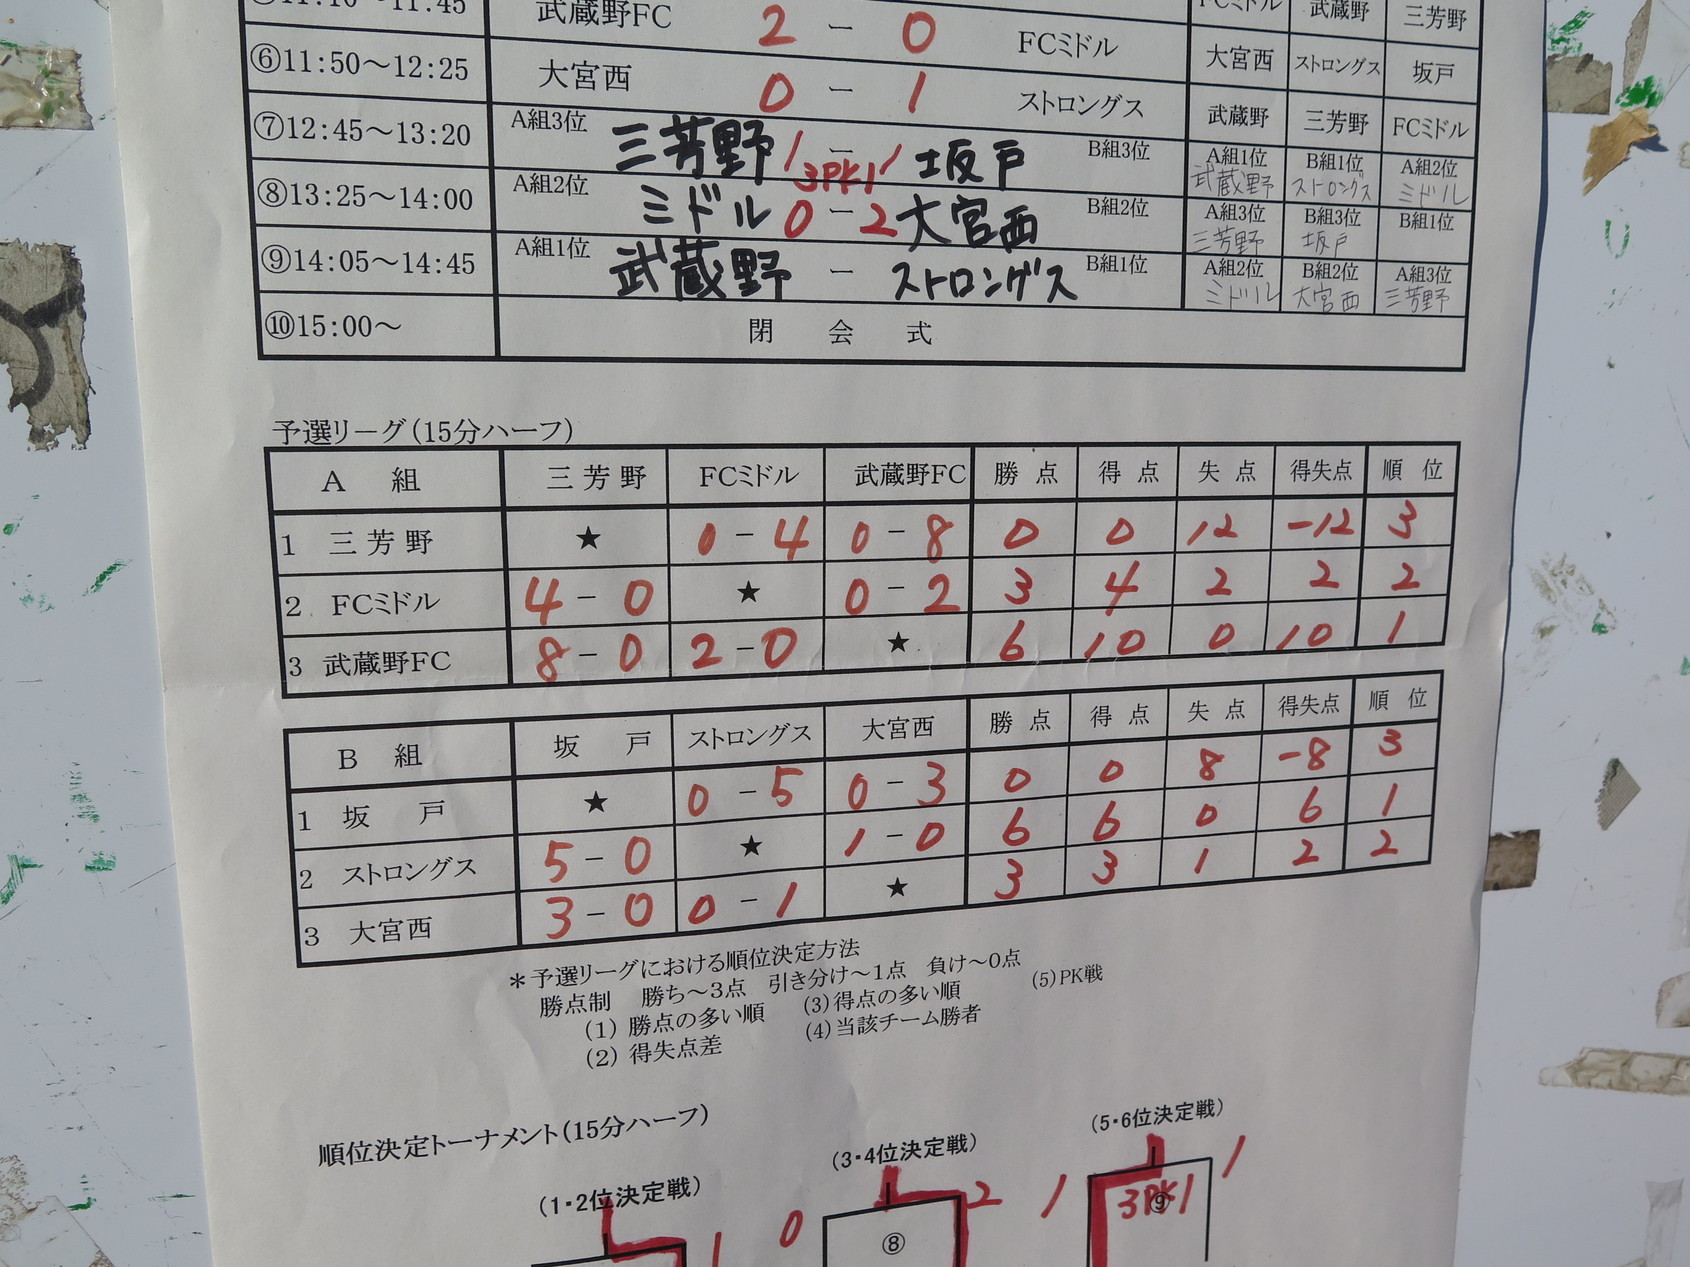 ⑤11:10～11:45 武蔵野FC 2 － 0 FCミドル FCミドル 武蔵野 三芳野
⑥11:50～12:25 大宮西 0 － 1 ストロングス 大宮西 ストロングス 坂戸
⑦12:45～13:20 A組3位 三芳野 1 － 1 坂戸 B組3位 武蔵野 三芳野 FCミドル
3PK1
⑧13:25～14:00 A組2位 ミドル 0 － 2 大宮西 B組2位 A組1位 武蔵野 B組1位 ストロングス A組2位 ミドル
⑨14:05～14:45 A組1位 武蔵野 － ストロングス B組1位 A組3位 三芳野 B組3位 坂戸 B組1位
A組2位 ミドル B組2位 大宮西 A組3位 三芳野
⑩15:00～ 閉 会 式
予選リーグ(15分ハーフ)
A 組 三芳野 FCミドル 武蔵野FC 勝点 得点 失点 得失点 順位
1 三芳野 ★ 0－4 0－8 0 0 12 -12 3
2 FCミドル 4－0 ★ 0－2 3 4 2 2 2
3 武蔵野FC 8－0 2－0 ★ 6 10 0 10 1
B 組 坂 戸 ストロングス 大宮西 勝点 得点 失点 得失点 順位
1 坂 戸 ★ 0－5 0－3 0 0 8 -8 3
2 ストロングス 5－0 ★ 1－0 6 6 0 6 1
3 大宮西 3－0 0－1 ★ 3 3 1 2 2
＊予選リーグにおける順位決定方法
勝点制 勝ち～3点 引き分け～1点 負け～0点
(1) 勝点の多い順 (3)得点の多い順 (5)PK戦
(2) 得失点差 (4)当該チーム勝者
順位決定トーナメント(15分ハーフ)
(1・2位決定戦) (3・4位決定戦) (5・6位決定戦)
1 0 ⑧ 2 1 3PK1 ⑨ 1